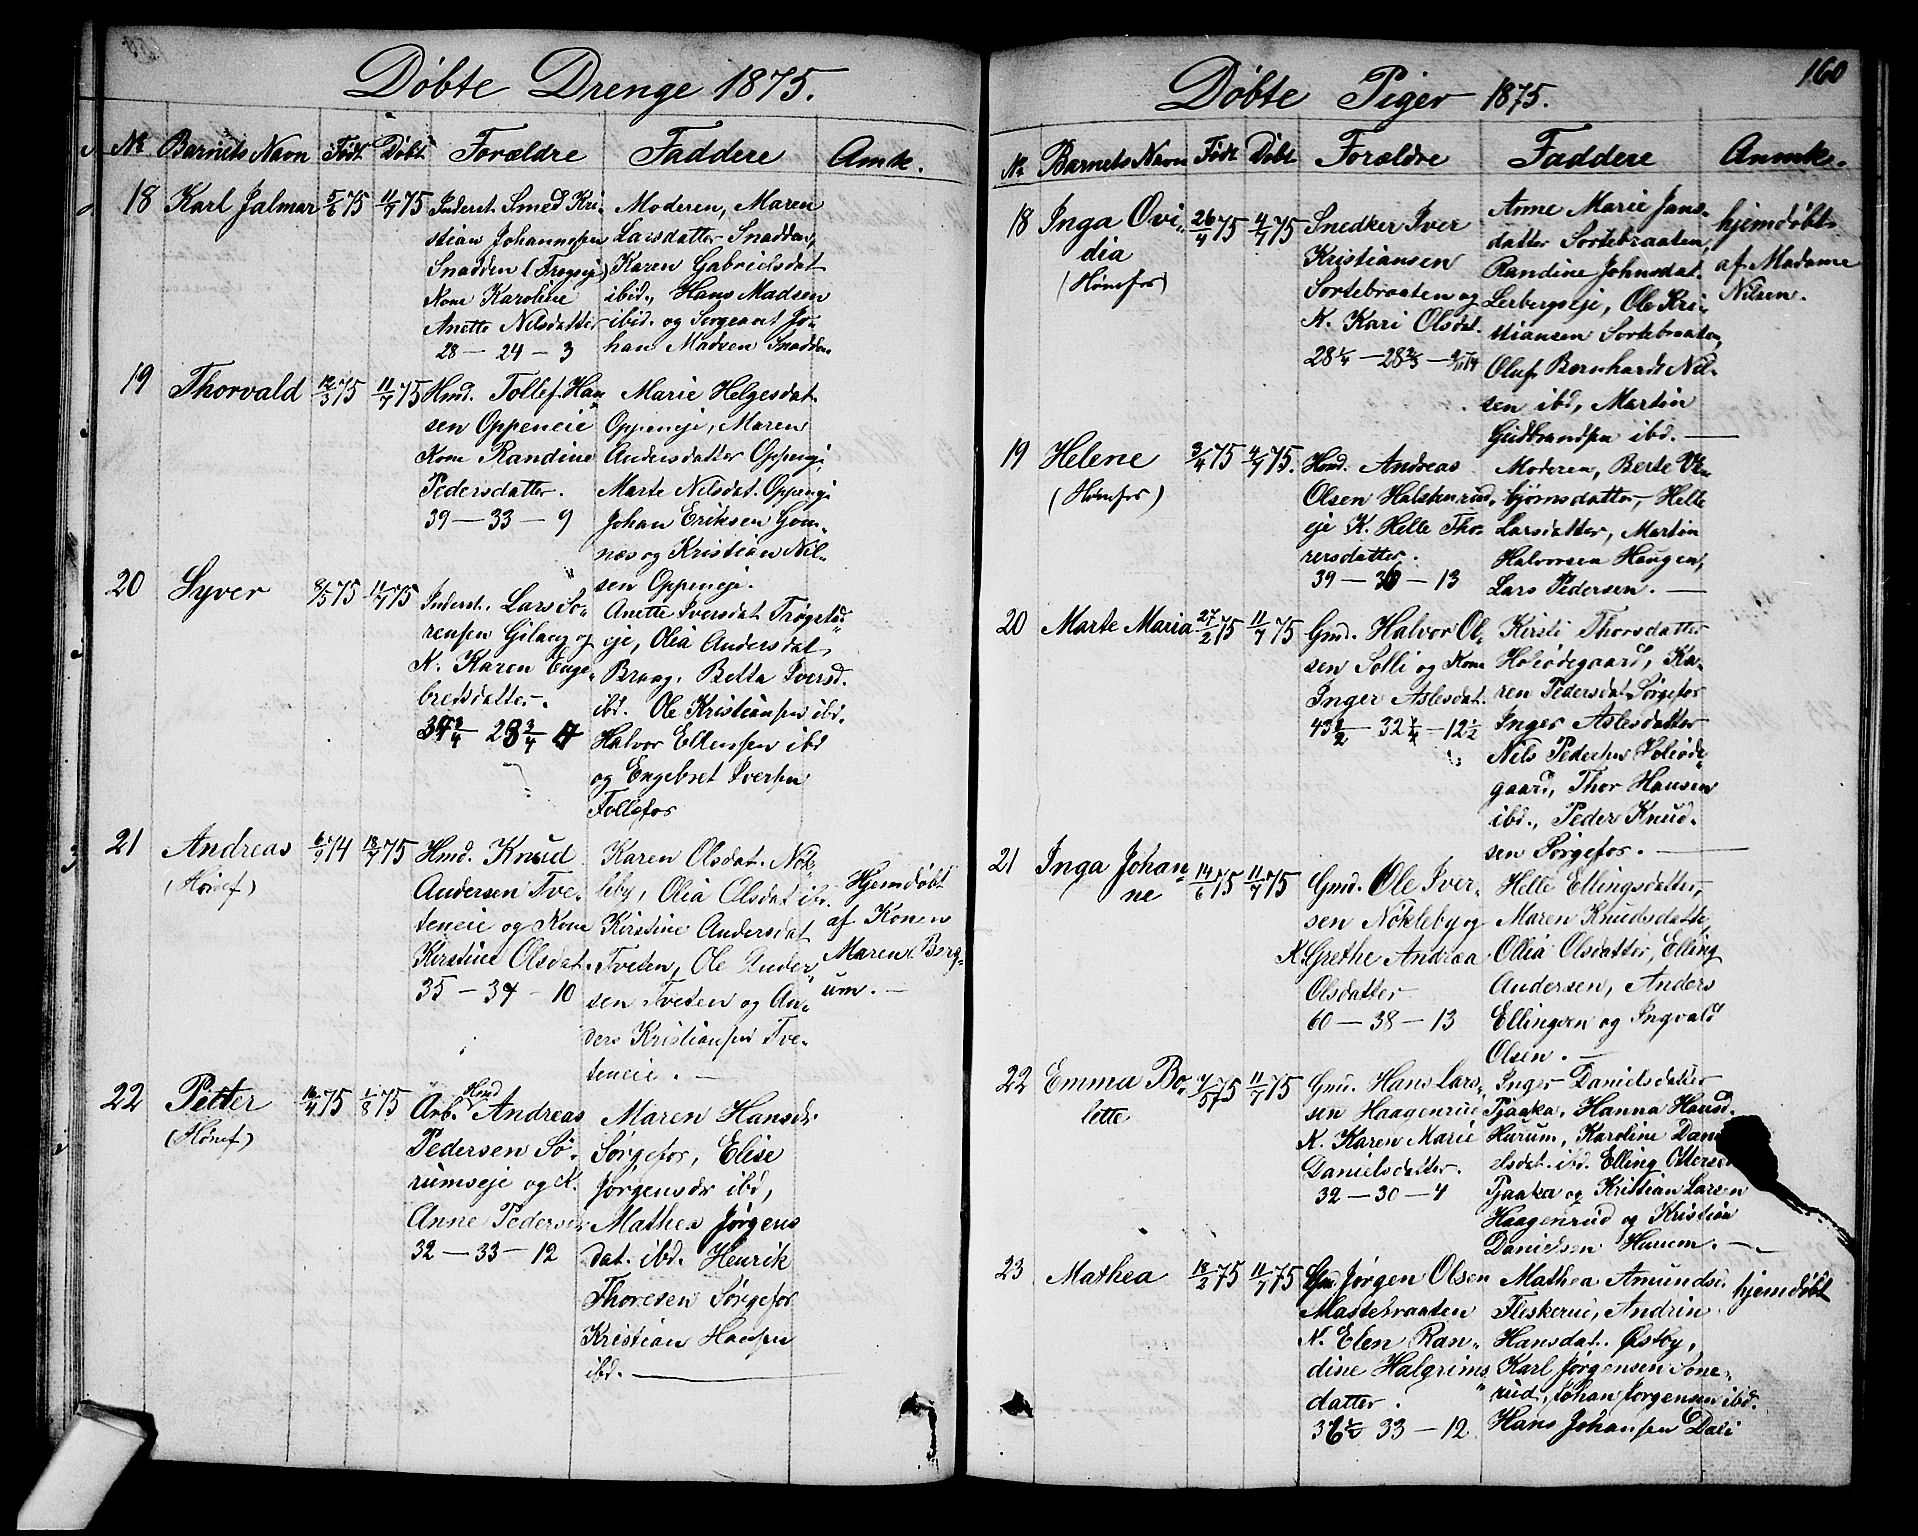 Døbte Drenge 1875.
No Barnets Navn Født Døbt Forældre Faddere Anmk.
18 Karl Jalmar 5/6 75 11/7 75
Inderst. Smed Kri-
stian Johannesen
Snadden (Fragseje)
Kone Karoline
Anette Nilsdatter
28 — 24 — 3
Moderen, Maren
Larsdatter Snadden,
Karen Gabrielsdat
ibid., Hans Madsen
ibid. og Sergeant Jo-
han Madsen Snadden
19 Thorvald 12/3 75 11/7 75
Hmd. Tollef Han
sen Oppeneie
Kone Randine
Pedersdatter.
39 — 33 — 9
Marie Helgesdat.
Oppeneje, Maren
Andersdatter Oppenej.
Marte Nilsdat. Oppenej
Johan Eriksen Gom-
næs og Kristian Nil-
sen Oppeneje.
20 Syver 8/5 75 11/7 75
Inderst. Lars So-
rensen Gilaug og
K. Karen Enge-
bretsdatter.
Anette Iversdat Trøgstad
eje, Olia Andersdat,
Braag, Betta Iversd.
ibd. Ole Kristiansen ibd.
Halvor Ellensen ibd
og Engebret Iversen
Follefos
21 Andreas 6/9 74 18/7 75
(Hønef)
Hmd. Knud
Andersen Tve-
teneie og Kone
Kirstine Olsdat.
35 — 34 — 10
Karen Olsdat. Nøk-
leby, Olia Olsdat ib.
Kirstine Andersdat
Tveten, Ole Ander-
sen Tveten og An-
ders Kristiansen Tve-
teneie. —
Hjemdøbt
af Konen
Maren Berg-
um. —
22 Petter 16/4 75 1/8 75
(Hønef)
Arb. Hmd Andreas
Pedersen Sö-
rumseje og K.
Anne Pedersdr
32 — 33 — 12
Maren Hansdr
Sørgefos, Elise
Jørgensdr ibd,
Mathea Jørgens
dat. ibd. Henrik
Thoresen Sørgefos
Kristian Hansen
ibd. —
160
Døbte Piger 1875.
No Barnets Navn Født Døbt Forældre Faddere Anmk.
18 Inga Ovi- 26/4 75 4/7 75
dia
(Hønefos)
Snedker Iver
Kristiansen
Sortebraaten og
K. Kari Olsdat.
Anne Marie Jans-
datter Sortebraaten,
Randine Johnsdat.
Lerbergseje, Ole Kri-
stiansen Sortebraaten,
Oluf Bernhardt Nil-
sen ibd, Martin
Gudbrandsen ibd. —
hjemdøbt
af Madame
Nilsen.
19 Helene 3/4 75 4/7 75.
(Hønefos)
Hmd. Andreas
Olsen Halstenrud
eje K. Helle Tho-
rersdatter.
39 — 36 — 13
Moderen, Berte Ve-
bjørnsdatter, Helle
Larsdatter, Martin
Halvorsen Haugen,
Lars Pedersen. —
20 Marte Maria 27/2 75 11/7 75
Gmd. Halvor Ol-
sen Solli og Kone
Inger Aslesdat.
Kirsti Thorsdatter
Holeødegaard, Ka-
ren Pedersdat Sørgefos
Inger Aslesdatter
Nils Pedersen Holeøde-
gaard, Thor Hansen
ibd., Peder Knud-
sen Sørgefos. —
21 Inga Johan 14/6 75 11/7 75
ne
Gmd. Ole Iver-
sen Nökleby og
K. Grethe Andrea
Olsdatter
60 — 38 — 13
Helle Ellingsdatter,
Maren Knudsdatter,
Ollia Olsdatter, Elling
Andersen, Anders
Ellingsen og Ingvald
Olsen. —
22 Emma Bo- 75 11/7 75
lette
Gmd. Hans Lars-
sen Haagenrud
K. Karen Marie
Danielsdatter.
32 — 30 — 4
Inger Danielsdatter
Pjaaka, Hanna Hansd.
Hurum, Karoline Dani
elsdat. ibd. Elling Ottersen
Pjaaka og Kristian Larsen
Haagenrud og Kristian
Danielsen Hurum. —
23 Mathea 18/2 75 11/7 75
Gmd. Jørgen Olsen
Mastebraaten
K. Elen Ran-
dine Halgrims
datter.
Mathea Amundsd.
Fleskerud, Andrin
Hansdat. Østby,
Karl Jørgensen Sone-
rud, Johan Jørgensen ibd.
Hans Johansen Dali
hjemdøbt